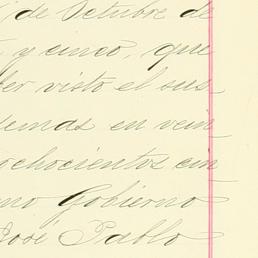 de Octubre de
y cinco, que
ber visto el sus
demas en vein
ochocientos cin
mo Gobierno
José Pablo